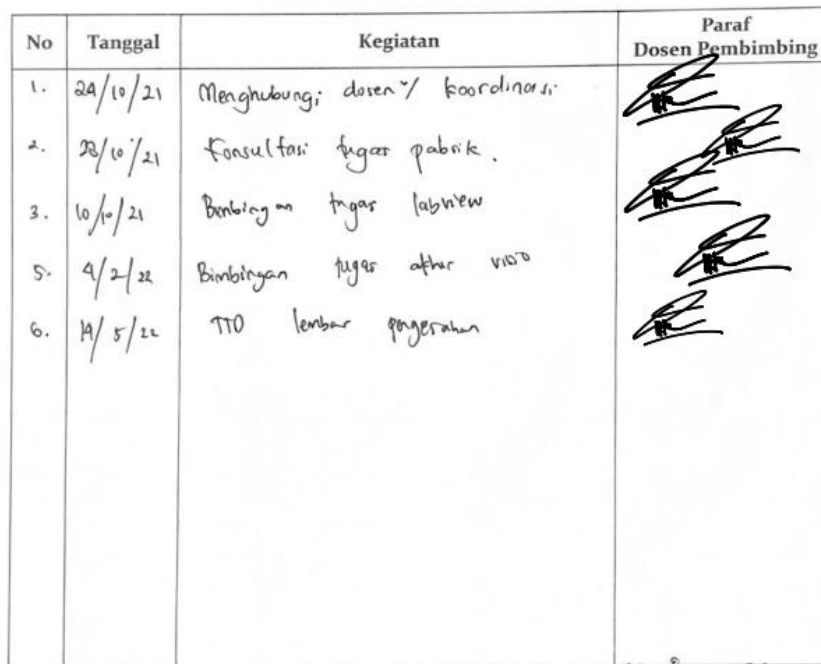 No Tanggal Kegiatan Paraf Dosen Pembimbing
1. 24/10/21 Menghubungi dosen u/ koordinasi
2. 28/10/21 Konsultasi tugas pabrik.
3. 10/10/21 Bimbingan tugas labview
5. 4/2/22 Bimbingan tugas akhir
6. 14/5/22 TTD lembar pengesahan